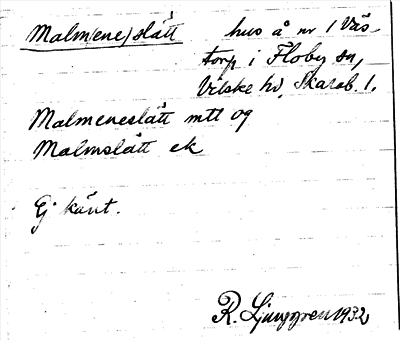 Malm(ene)slätt hus å nr 1 Väs-
torp i Floby sn,
Vilske hd, Skarab. l.
Malmeneslätt mtt og
Malmslätt ek
Ej känt.
R. Ljunggren 1932